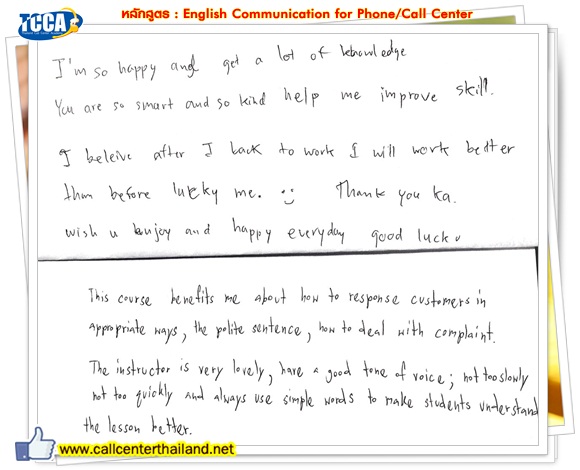 TCCA
หลักสูตร : English Communication for Phone/Call Center
I'm so happy and get a lot of knowledge
You are so smart and so kind help me improve skill.
I beleive after I back to work I will work better
than before lucky me. :)   Thank you ka.
wish u enjoy and happy everyday good luck
This course benefits me about how to response customers in
appropriate ways, the polite sentence, how to deal with complaint.
The instructor is very lovely, have a good tone of voice; not too slowly
not too quickly and always use simple words to make students understand
the lesson better.
www.callcenterthailand.net